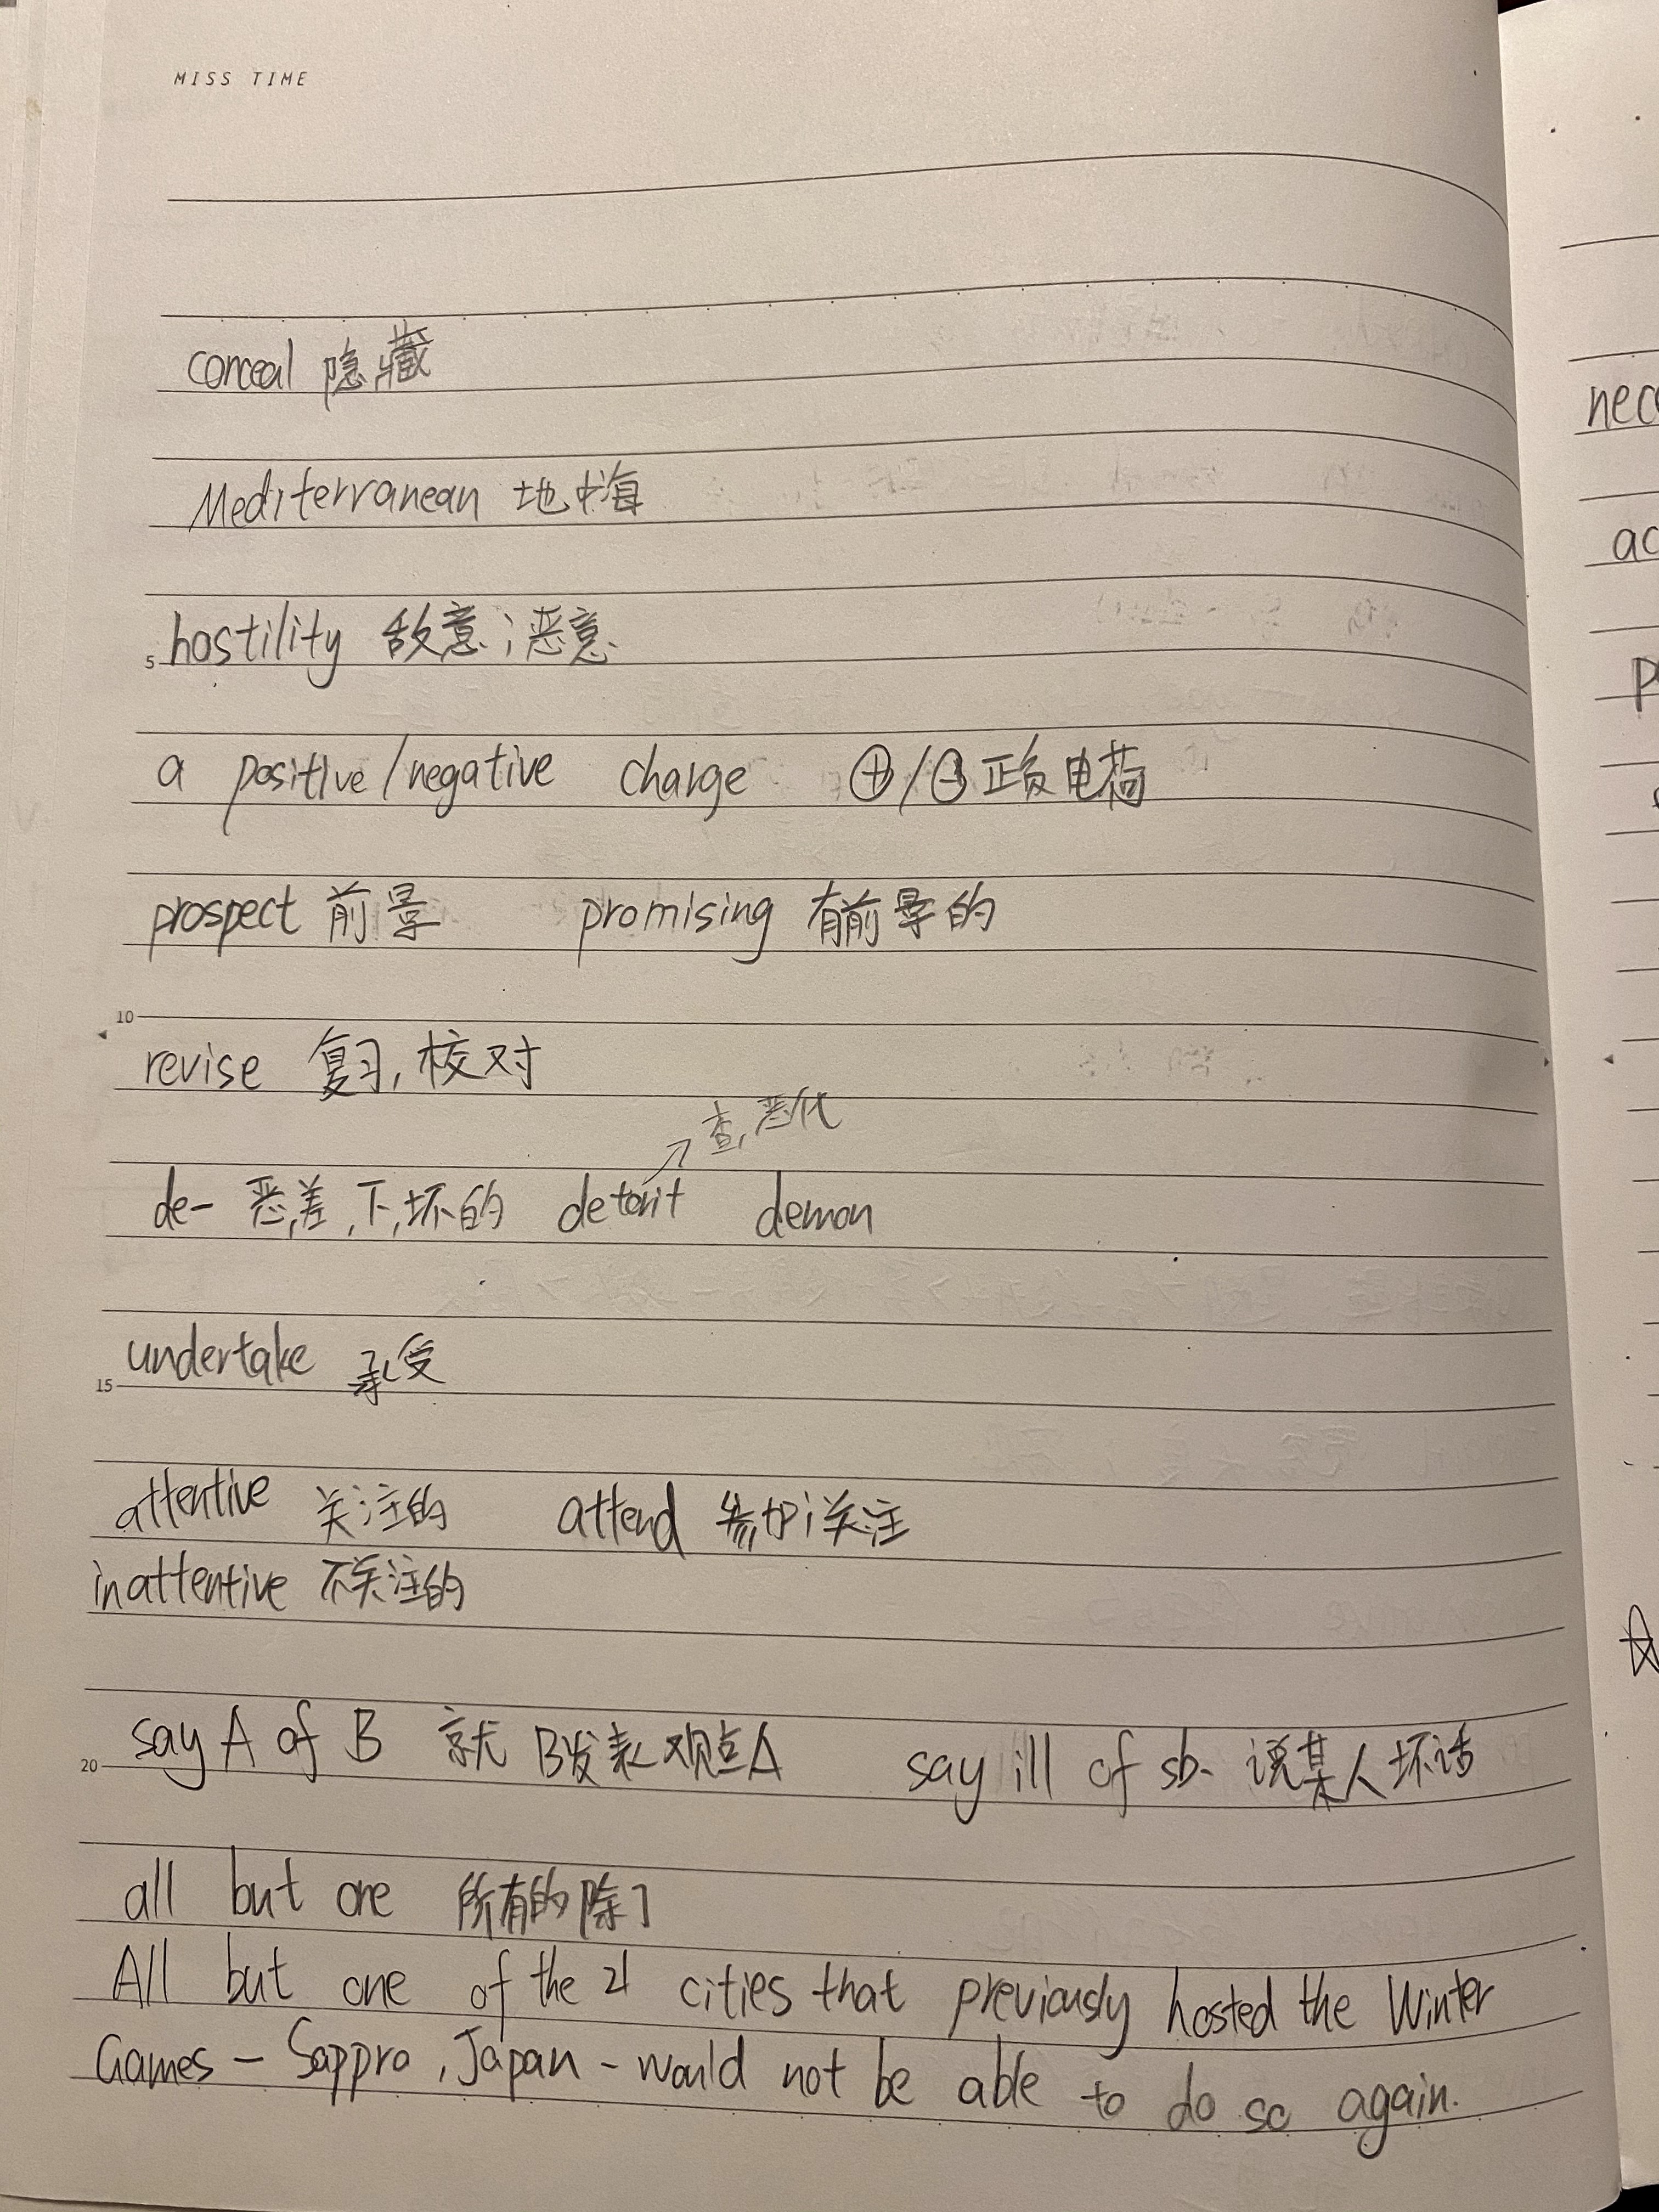 MISS TIME
conceal 隐藏
Mediterranean 地中海
5 hostility 敌意；恶意
a positive/negative change ⊕/⊖ 正负电荷
prospect 前景 promising 有前景的
10
revise 复习，校对
de- 恶，差，下，坏的 detorit demon
→ 恶化
15
undertake 承受
attentive 关注的 attend 参加；关注
inattentive 不关注的
20 say A of B 就B发表观点A say ill of sb. 说某人坏话
all but one 所有的除了
All but one of the 21 cities that previously hosted the Winter
Games - Sappro, Japan - would not be able to do so again.
nec
ac
p